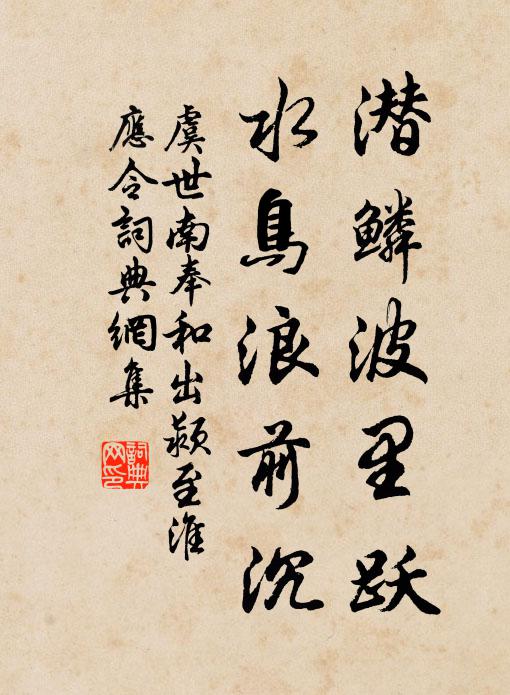 潜鳞波里跃
水鳥浪前沉
虞世南奉和出颍至淮
應令詞典網集
詞典
网印